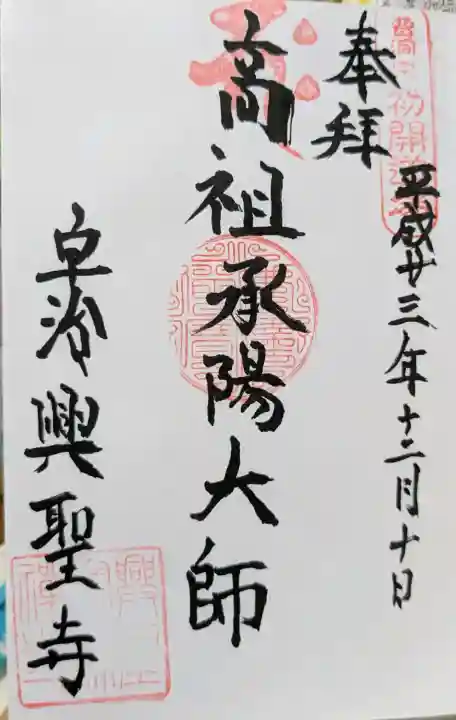 奉拝
平成廿三年十二月十日
高祖承陽大師
宇治興聖寺
初開道場